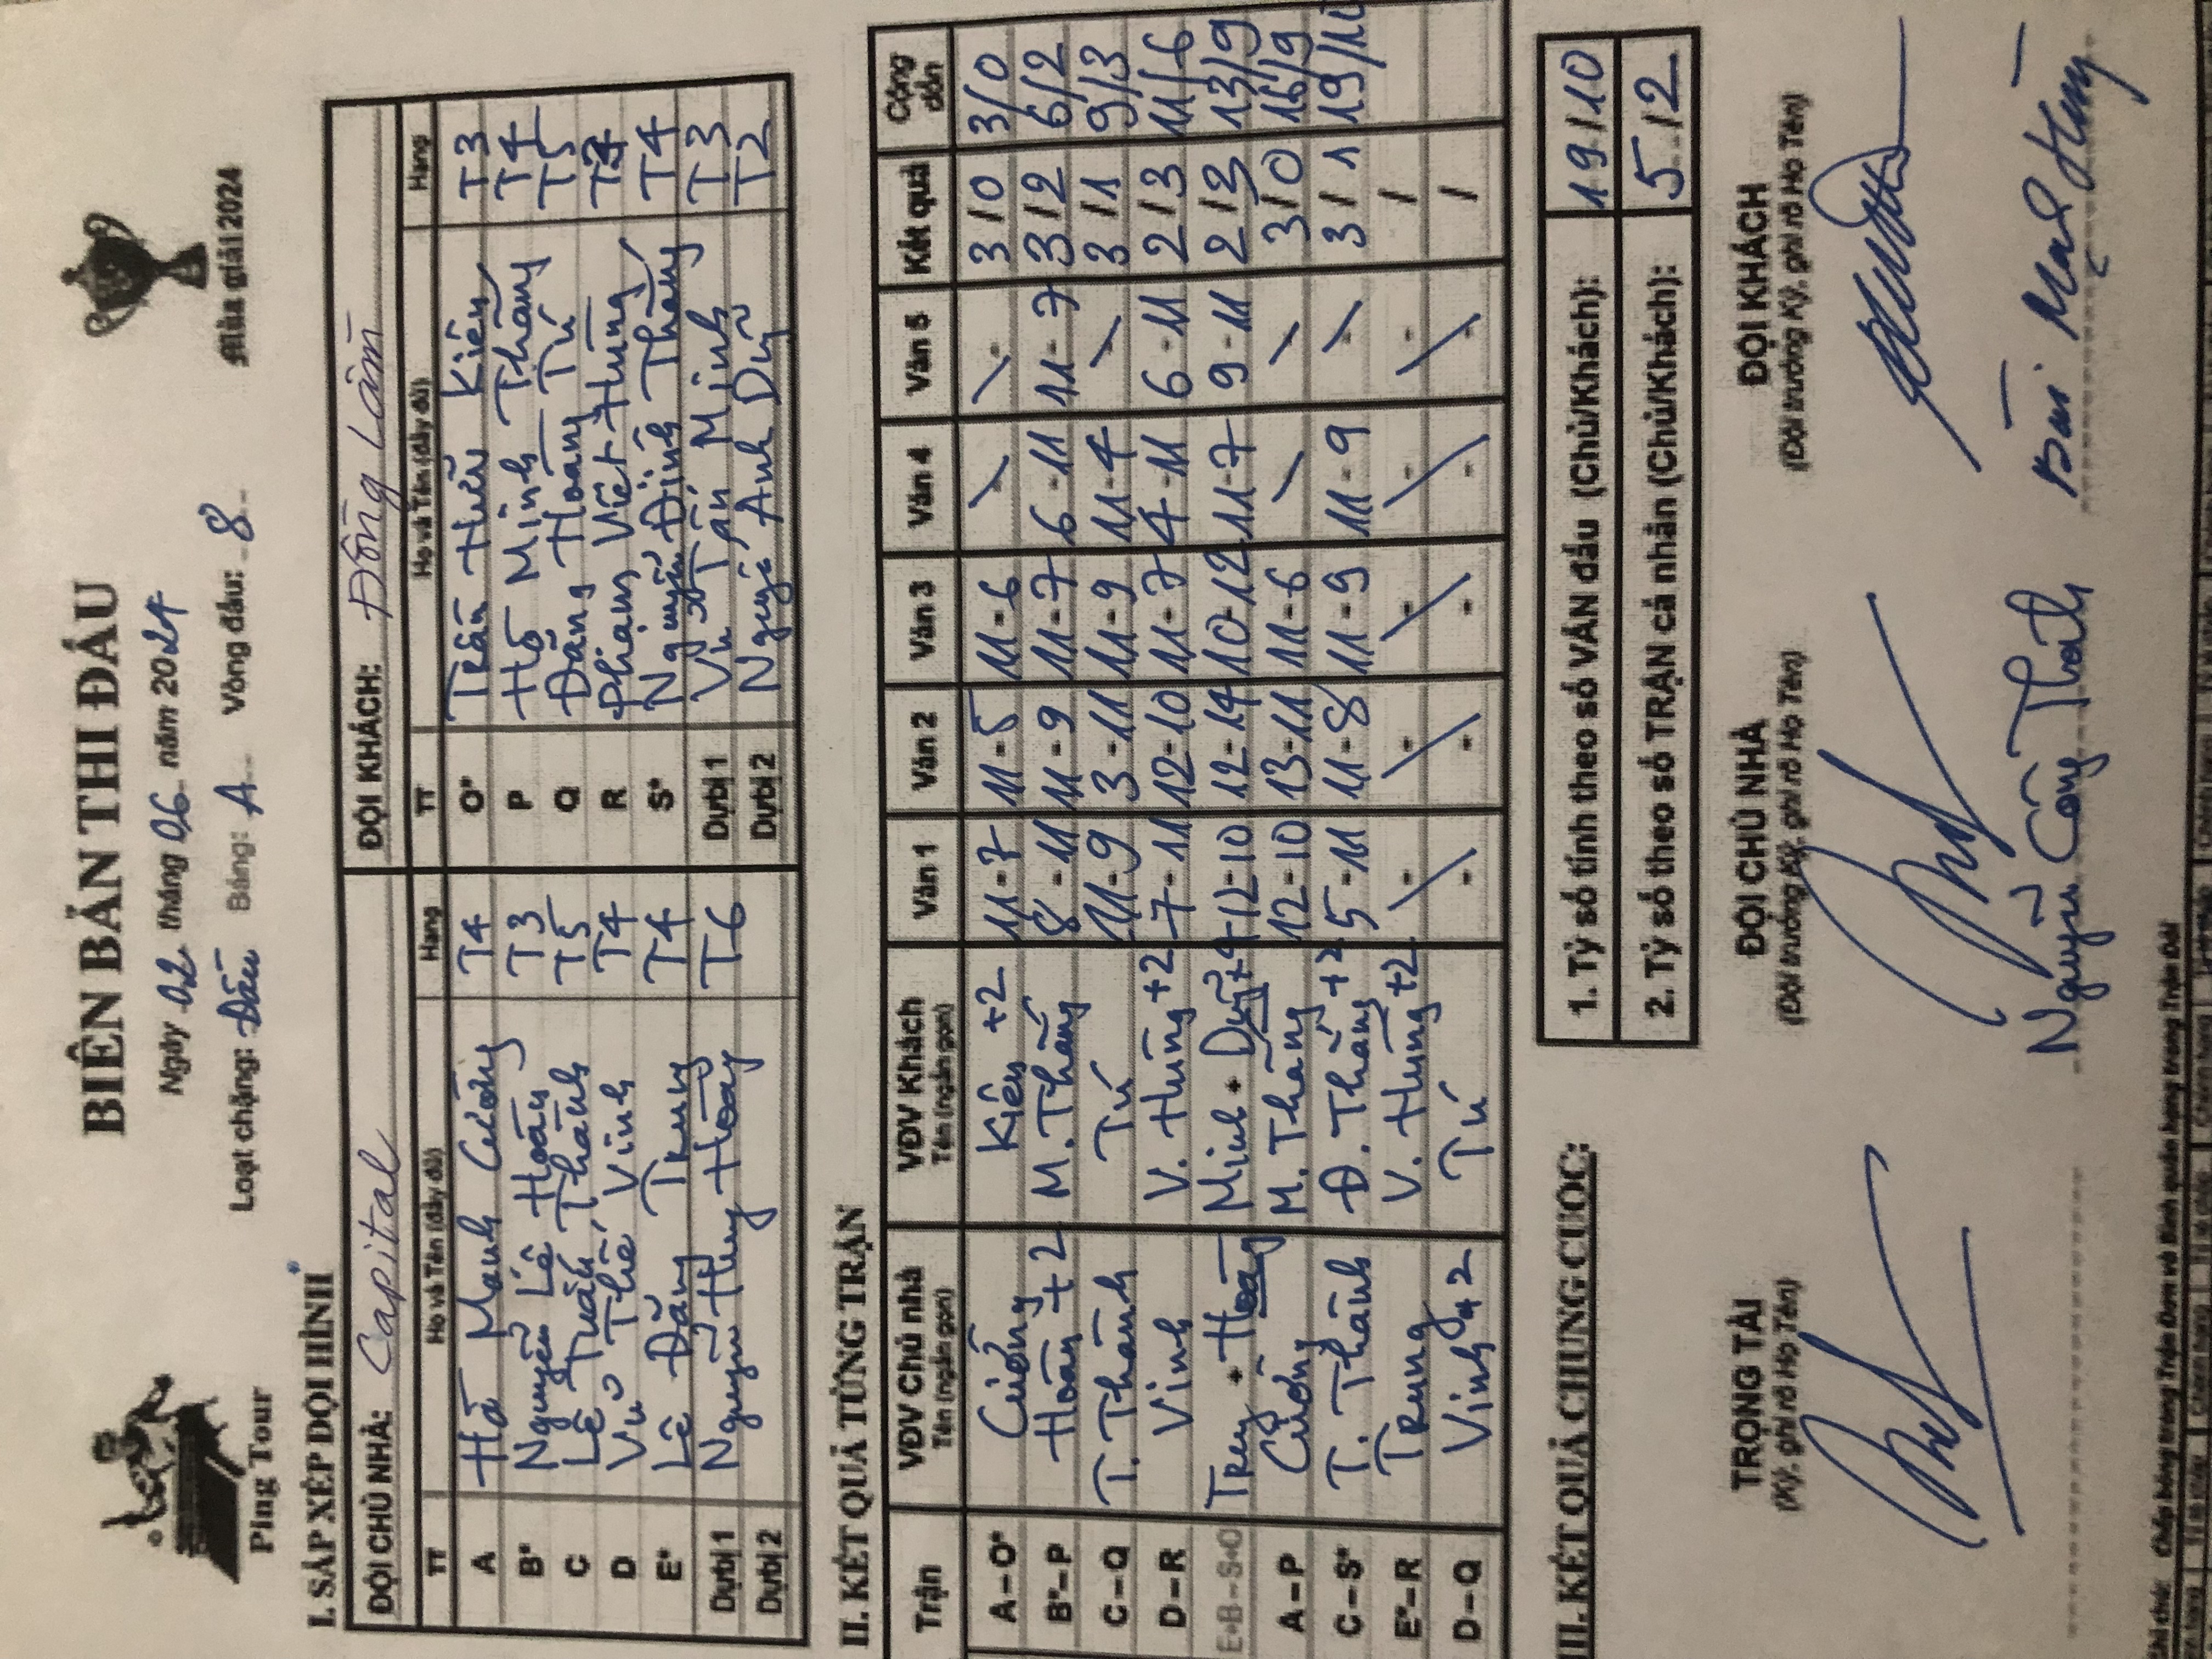 Ping Tour
BIÊN BẢN THI ĐẤU
Ngày 02 tháng 06 năm 2024
Loạt chặng: Đấu Bảng: A Vòng đấu: 8
Mùa giải 2024
I. SẮP XẾP ĐỘI HÌNH
ĐỘI CHỦ NHÀ: Capital ĐỘI KHÁCH: Đồng Lầm
TT Họ và Tên (đầy đủ) Hạng TT Họ và Tên (đầy đủ) Hạng
A Hà Mạnh Cường T4 O* Trần Hữu Kiên T3
B* Nguyễn Lê Hoàn T3 P Hồ Minh Thắng T4
C Lê Tuấn Thành T5 Q Đặng Hoàng Tú T5
D Vũ Thế Vinh T4 R Phạm Việt Hùng T4
E* Lê Đăng Trung T4 S* Nguyễn Đình Thắng T4
Dự bị 1 Nguyễn Huy Hoàng T6 Dự bị 1 Vũ Tấn Minh T3
Dự bị 2 Dự bị 2 Nguyễn Anh Dũng T2
II. KẾT QUẢ TỪNG TRẬN
Trận VĐV Chủ nhà VĐV Khách Ván 1 Ván 2 Ván 3 Ván 4 Ván 5 Kết quả Cộng dồn
Tên (ngắn gọn) Tên (ngắn gọn)
A – O* Cường Kiên +2 11-7 11-5 11-6 - - 3/0 3/0
B*– P Hoàn +2 M. Thắng 8-11 11-9 11-7 6-11 11-7 3/2 6/2
C – Q T. Thành Tú 11-9 3-11 11-9 11-4 - 3/1 9/3
D – R Vinh V. Hùng +2 7-11 12-10 11-7 4-11 6-11 2/3 11/6
E+B – S+O + Hoàng Minh + Dũng+4 12-10 12-14 10-12 11-7 9-11 2/3 13/9
A – P Cường M. Thắng 12-10 13-11 11-6 - - 3/0 16/9
C – S* T. Thành Đ. Thắng +2 5-11 11-8 11-9 11-9 - 3/1 19/10
E*– R Trung V. Hùng+2 - - - - - /
D – Q Vinh +2 Tú - - - - - /
III. KẾT QUẢ CHUNG CUỘC:
1. Tỷ số tính theo số VÁN đấu (Chủ/Khách): 19/10
2. Tỷ số theo số TRẬN cá nhân (Chủ/Khách): 5/2
TRỌNG TÀI ĐỘI CHỦ NHÀ ĐỘI KHÁCH
(Ký, ghi rõ Họ Tên) (Đội trưởng Ký, ghi rõ Họ Tên) (Đội trưởng Ký, ghi rõ Họ Tên)
Nguyễn Công Thành Bùi Mạnh Hùng
Ghi chú: